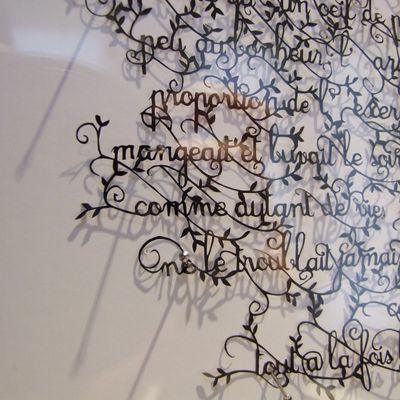 un œil de
peu du bonheur, t
proportion de l'
mangeait et buvait le soir
comme autant de vie,
ne le troublait jamais
tout à la fois